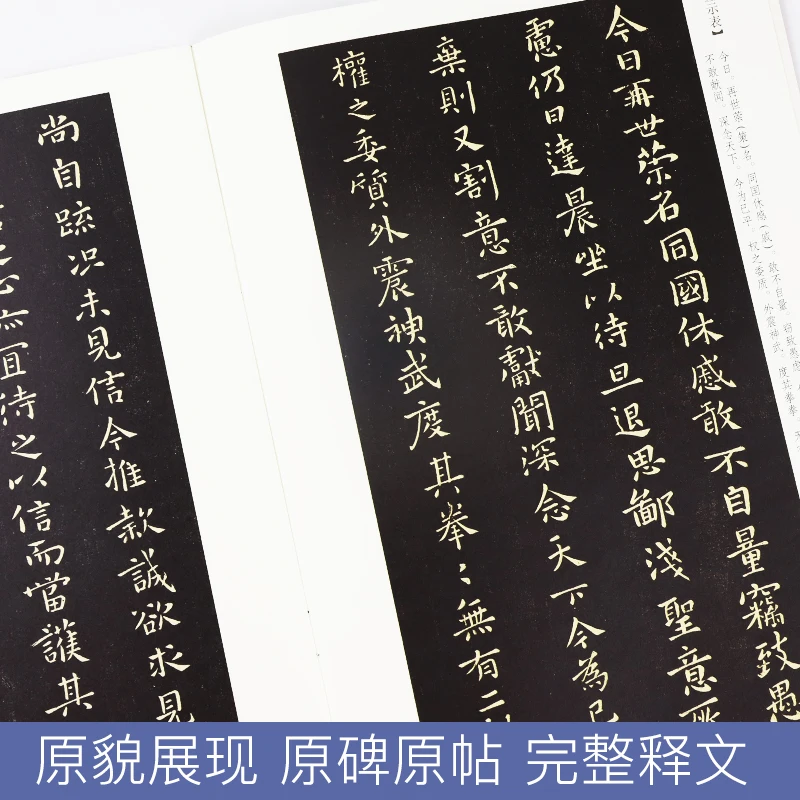 示表】
今日。再世荣（荣）名，同国休感（戚）。敢不自量。窃致愚虑
不敢献闻。深念天下。今为已平，权之委质，外震神武，度其拳拳，
今日再世荣名同國休慼敢不自量竊致愚
慮仍日達晨坐以待旦退思鄙淺聖意所
棄則又割意不敢獻聞深念天下今為已
權之委質外震神武度其拳〻無有二
尚自疏况未見信今推款誠欲求見
亦宜待之以信而當護其
原貌展现 原碑原帖 完整释文